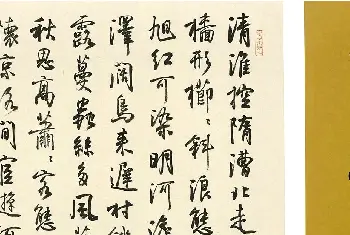 清淮控隋漕北走
檣形櫛〻斜浪態
旭紅可染明河澹
澤闊鳥來遲村
露蔓蟲絲多風
秋思高蕭〻客
懷京洛間宦遊